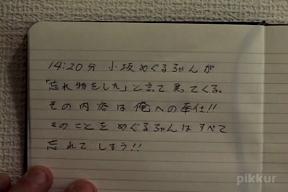 14:20分 小坂めぐるちゃんが
「忘れ物をした」と言って戻ってくる。
その内容は俺への奉仕!!
そのことをめぐるちゃんはすべて
忘れてしまう!!
pikkur